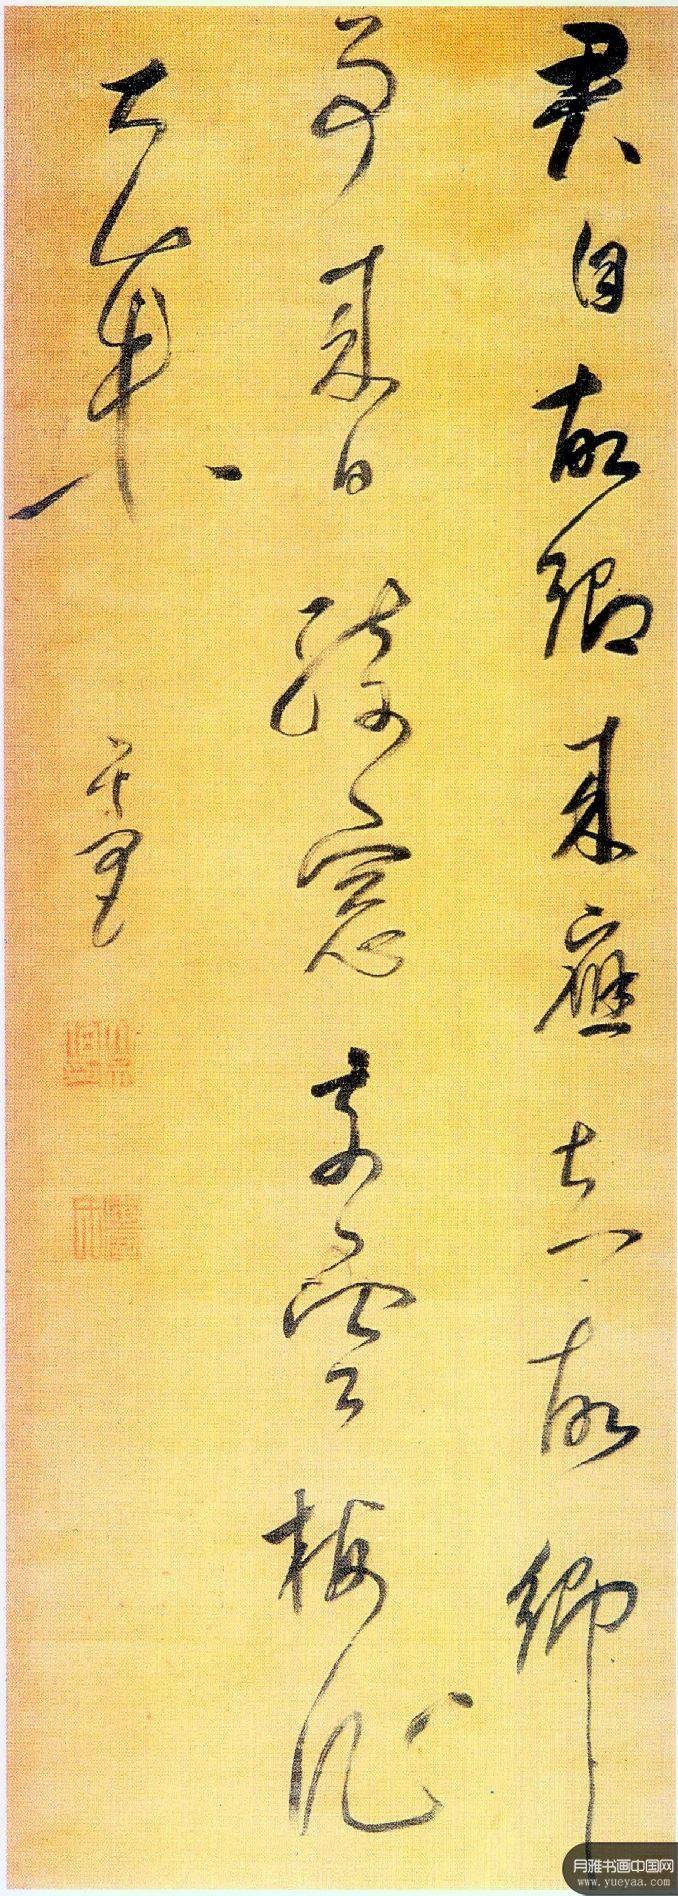 君自故鄉來應知故鄉
事來日綺窓前寒梅花
著未
其昌
月雅书画中国网
www.yueyaa.com